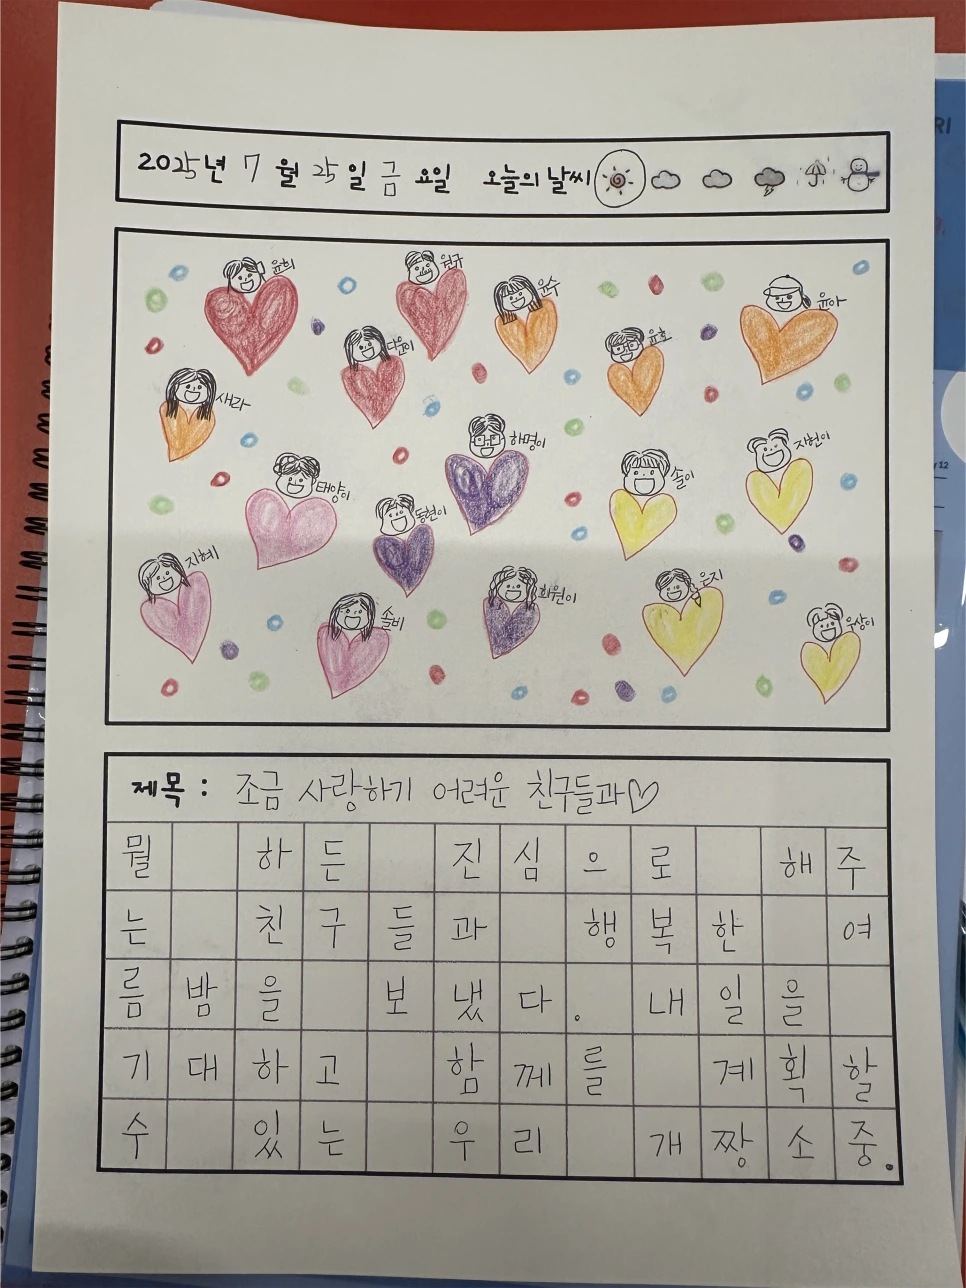 2025년 7월 25일 금요일 오늘의 날씨
윤희
원규
윤수
윤아
다윤이
윤호
새라
하명이
지현이
태양이
솔이
동현이
지혜
솔비
희원이
은지
우상이
제목 : 조금 사랑하기 어려운 친구들과♡
뭘 하든 진심으로 해주
는 친구들과 행복한 여
름밤을 보냈다. 내일을
기대하고 함께를 계획할
수 있는 우리 개짱소중.